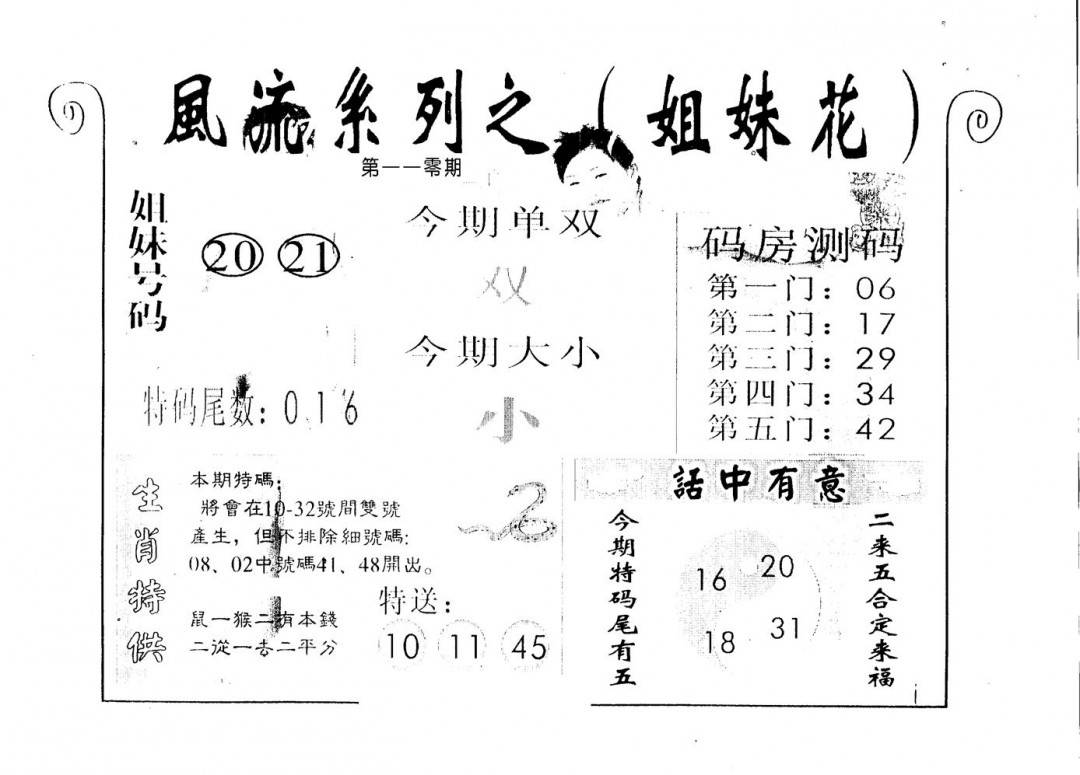 風流系列之（姐妹花）
第一一零期
姐妹号码
20 21
特码尾数：0 1 6
今期单双
双
今期大小
小
码房测码
第一门：06
第二门：17
第三门：29
第四门：34
第五门：42
生肖特供
本期特碼：
將會在10-32號間雙號
產生，但不排除細號碼:
08、02中號碼41、48開出。
鼠一猴二有本錢
二從一去二平分
2
特送：
10 11 45
話中有意
今期特码尾有五
16 20
18 31
二来五合定来福